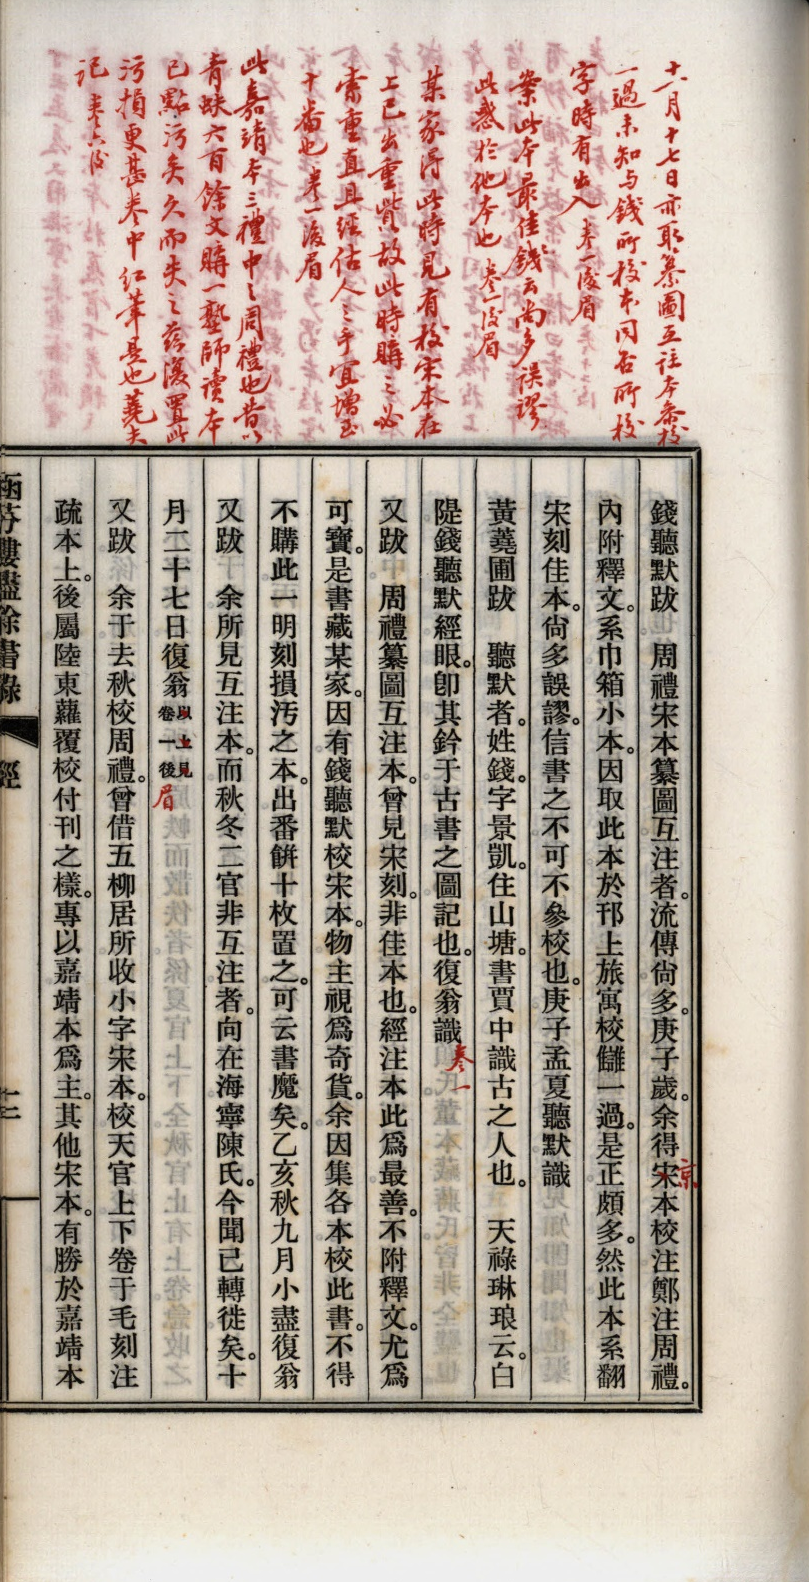 十一月十七日亦取纂圖互注本參校
一過未知与錢所校本同否所校
字時有出入 卷一後眉
案此本最佳錢云尚多誤謬
此惑於他本也 卷一後眉
某家得此時見有校宋本在
上已出重貲故此時購之必
索重直且經估人之手宜增至
十番也 卷一後眉
此嘉靖本三禮中之周禮也昔以
青蚨六百餘文購一塾師讀本
已點污矣久而失之茲復置此
污損更甚卷中紅筆是也蕘夫
記 卷六後
錢聽默跋 周禮宋本纂圖互注者。流傳尙多。庚子歲。余得宋本校注鄭注周禮。
京
內附釋文。系巾箱小本。因取此本於邗上旅寓校讎一過。是正頗多。然此本系翻
宋刻佳本。尙多誤謬。信書之不可不參校也。庚子孟夏聽默識
黃蕘圃跋 聽默者。姓錢。字景凱。住山塘。書賈中識古之人也。 天祿琳琅云。白
隄錢聽默經眼。卽其鈐于古書之圖記也。復翁識
卷一
又跋 周禮纂圖互注本。曾見宋刻。非佳本也。經注本此爲最善。不附釋文。尤爲
可寶。是書藏某家。因有錢聽默校宋本。物主視爲奇貨。余因集各本校此書。不得
不購此一明刻損汚之本。出番餅十枚置之。可云書魔矣。乙亥秋九月小盡復翁
又跋 余所見互注本。而秋冬二官非互注者。向在海寧陳氏。今聞已轉徙矣。十
月二十七日復翁 以上見卷一後眉
又跋 余于去秋校周禮。曾借五柳居所收小字宋本。校天官上下卷于毛刻注
疏本上。後屬陸東蘿覆校付刊之樣。專以嘉靖本爲主。其他宋本。有勝於嘉靖本
涵芬樓燼餘書錄 經 十二